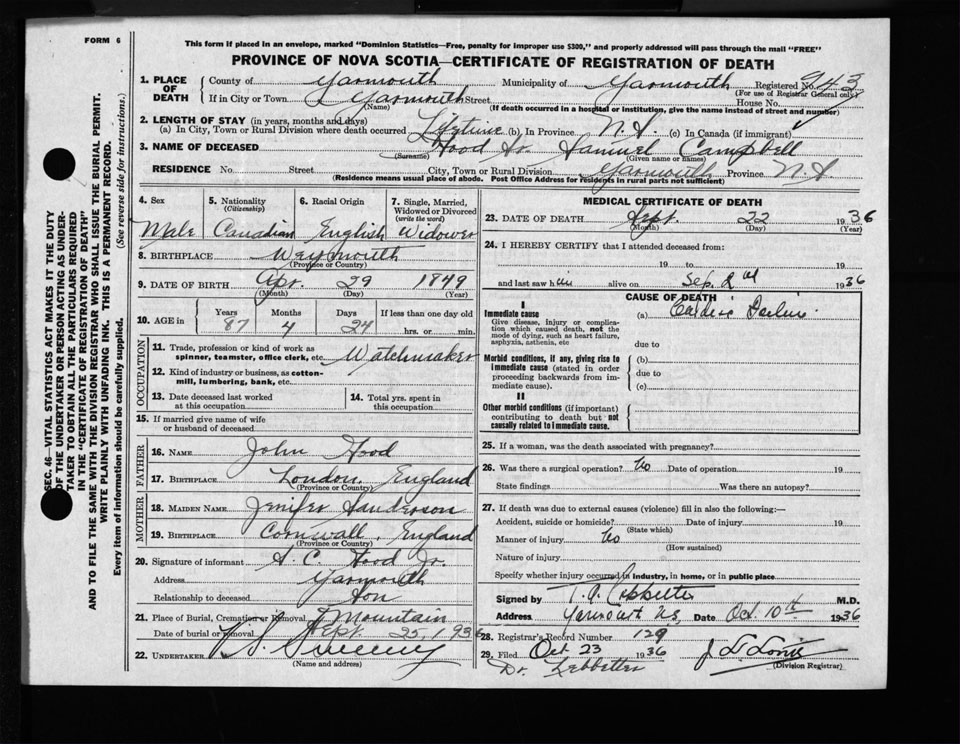 FORM 6
This form if placed in an envelope, marked "Dominion Statistics—Free, penalty for improper use $300," and properly addressed will pass through the mail "FREE"
PROVINCE OF NOVA SCOTIA—CERTIFICATE OF REGISTRATION OF DEATH
1. PLACE OF DEATH County of Yarmouth Municipality of Yarmouth Registered No. 943
(For use of Registrar General only)
If in City or Town Yarmouth Street House No.
(Name) (If death occurred in a hospital or institution, give the name instead of street and number)
2. LENGTH OF STAY (in years, months and days)
(a) In City, Town or Rural Division where death occurred Lifetime (b) In Province N.S. (c) In Canada (if immigrant)
3. NAME OF DECEASED Hood Sr. Samuel Campbell
(Surname) (Given name or names)
RESIDENCE No. Street City, Town or Rural Division Yarmouth Province N.S
(Residence means usual place of abode. Post Office Address for residents in rural parts not sufficient)
4. Sex 5. Nationality (Citizenship) 6. Racial Origin 7. Single, Married, Widowed or Divorced (write the word)
Male Canadian English Widower
8. BIRTHPLACE Weymouth
(Province or Country)
9. DATE OF BIRTH Apr. 29 1849
(Month) (Day) (Year)
10. AGE in Years Months Days If less than one day old
87 4 24 hrs. or min.
OCCUPATION
11. Trade, profession or kind of work as spinner, teamster, office clerk, etc. Watchmaker
12. Kind of industry or business, as cotton-mill, lumbering, bank, etc.
13. Date deceased last worked at this occupation 14. Total yrs. spent in this occupation
15. If married give name of wife or husband of deceased
FATHER
16. NAME John Hood
17. BIRTHPLACE London, England
(Province or Country)
MOTHER
18. MAIDEN NAME Jenifer Sanderson
19. BIRTHPLACE Cornwall, England
(Province or Country)
20. Signature of informant S. C. Hood Jr.
Address Yarmouth
Relationship to deceased Son
21. Place of Burial, Cremation or Removal Mountain
Date of burial or removal Sept. 25, 1936
22. UNDERTAKER V. S. Sweeny
(Name and address)
MEDICAL CERTIFICATE OF DEATH
23. DATE OF DEATH Sept. 22 1936
(Month) (Day) (Year)
24. I HEREBY CERTIFY that I attended deceased from:
19 to 19
and last saw him alive on Sep. 2nd 1936
CAUSE OF DEATH
I
Immediate cause (a) Cardiac Failure
Give disease, injury or complication which caused death, not the mode of dying, such as heart failure, asphyxia, asthenia, etc
due to
Morbid conditions, if any, giving rise to immediate cause (stated in order proceeding backwards from immediate cause).
(b)
due to
(c)
II
Other morbid conditions (if important) contributing to death but not causally related to immediate cause.
25. If a woman, was the death associated with pregnancy?
26. Was there a surgical operation? No Date of operation 19
State findings Was there an autopsy?
27. If death was due to external causes (violence) fill in also the following:—
Accident, suicide or homicide? Date of injury 19
(State which)
Manner of injury No
(How sustained)
Nature of injury
Specify whether injury occurred in industry, in home, or in public place
Signed by M.D.
Address Yarmouth N.S. Date Oct 10th 1936
28. Registrar's Record Number 129
29. Filed Oct 23 1936
(Division Registrar)
Dr. Lebbetter
SEC. 46—VITAL STATISTICS ACT MAKES IT THE DUTY
OF THE UNDERTAKER OR PERSON ACTING AS UNDERTAKER TO OBTAIN ALL THE PARTICULARS REQUIRED
IN THE "CERTIFICATE OF REGISTRATION OF DEATH"
AND TO FILE THE SAME WITH THE DIVISION REGISTRAR WHO SHALL ISSUE THE BURIAL PERMIT.
WRITE PLAINLY WITH UNFADING INK. THIS IS A PERMANENT RECORD.
Every item of information should be carefully supplied. (See reverse side for instructions.)